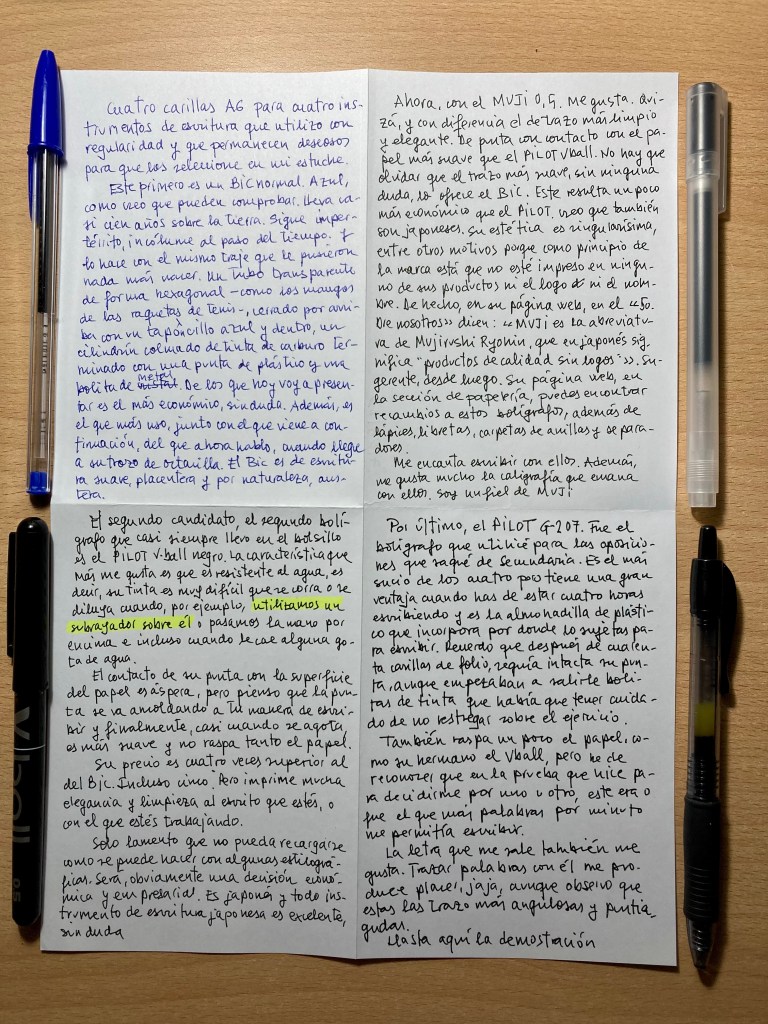 Cuatro carillas A6 para cuatro ins-
trumentos de escritura que utilizo con
regularidad y que permanecen deseosos
para que los seleccione en mi estuche.
Este primero es un Bic normal. Azul,
como creo que pueden comprobar. Lleva ca-
si cien años sobre la tierra. Sigue imper-
térrito, incólume al paso del tiempo. Y
lo hace con el mismo traje que le pusieron
nada más nacer. Un tubo transparente
de forma hexagonal -como los mangos
de las raquetas de tenis-, cerrado por arri-
ba con un taponcillo azul y dentro, un
cilindrín colmado de tinta de carburo ter-
minado con una punta de plástico y una
bolita de metal. De los que hoy voy a presen-
tar es el más económico, sin duda. Además, es
el que más uso, junto con el que viene a con-
tinuación, del que ahora hablo, cuando llegue
a su trozo de octavilla. El Bic es de escritu-
ra suave, placentera y por naturaleza, aus-
tera.
El segundo candidato, el segundo bolí-
grafo que casi siempre llevo en el bolsillo
es el PILOT V-ball negro. La característica que
más me gusta es que es resistente al agua, es
decir, su tinta es muy difícil que se corra o se
diluya cuando, por ejemplo, utilizamos un
subrayador sobre él o pasamos la mano por
encima e incluso cuando le cae alguna go-
ta de agua.
El contacto de su punta con la superficie
del papel es áspera, pero pienso que la pun-
ta se va amoldando a tu manera de escri-
bir y finalmente, casi cuando se agota,
es más suave y no raspa tanto el papel.
Su precio es cuatro veces superior al
del Bic. Incluso cinco. Pero imprime mucha
elegancia y limpieza al escrito que estés, o
con el que estés trabajando.
Solo lamento que no pueda recargarse
como se puede hacer con algunas estilográ-
ficas. Será, obviamente una decisión econó-
mica y empresarial. Es japonés y todo ins-
trumento de escritura japonesa es excelente,
sin duda
Ahora, con el MUJI 0,5. Me gusta. Qui-
zá, y con diferencia el de trazo más limpio
y elegante. De punta con contacto con el pa-
pel más suave que el PILOT Vball. No hay que
olvidar que el trazo más suave, sin ninguna
duda, lo ofrece el Bic. Este resulta un poco
más económico que el PILOT, creo que también
son japoneses. Su estética es singularísima,
entre otros motivos porque como principio de
la marca está que no esté impreso en ningu-
no de sus productos ni el logo ni el nom-
bre. De hecho, en su página web, en el «So-
bre nosotros» dicen: «MUJI es la abreviatu-
ra de Mujirushi Ryohin, que en japonés sig-
nifica "productos de calidad sin logos"». Su-
gerente, desde luego. Su página web, en
la sección de papelería, puedes encontrar
recambios a estos bolígrafos, además de
lápices, libretas, carpetas de anillas y separa-
dores.
Me encanta escribir con ellos. Además,
me gusta mucho la caligrafía que emana
con ellos. Soy un fiel de MUJI
Por último, el PILOT G-207. Fue el
bolígrafo que utilicé para las oposicio-
nes que saqué de Secundaria. Es el más
sucio de los cuatro pero tiene una gran
ventaja cuando has de estar cuatro horas
escribiendo y es la almohadilla de plásti-
co que incorpora por donde lo sujetas pa-
ra escribir. Recuerdo que después de cuaren-
ta carillas de folio, seguía intacta su pun-
ta, aunque empezaban a salirle boli-
tas de tinta que había que tener cuida-
do de no restregar sobre el ejercicio.
También raspa un poco el papel, co-
mo su hermano el Vball, pero he de
reconocer que en la prueba que hice pa-
ra decidirme por uno u otro, este era o
fue el que más palabras por minuto
me permitía escribir.
La letra que me sale también me
gusta. Trazar palabras con él me pro-
duce placer, jaja, aunque observo que
estas las trazo más angulosas y puntia-
gudas.
Hasta aquí la demostación
V ball
0.5